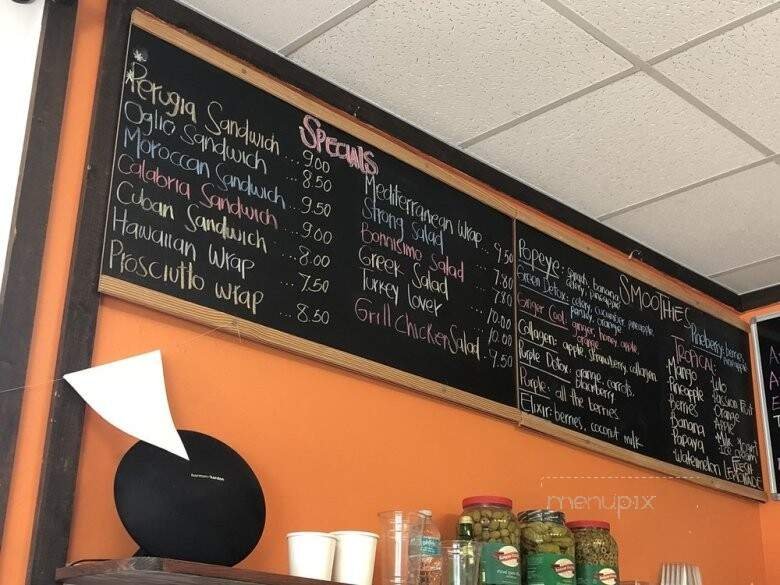 SPECIALS
Perugia Sandwich ... 9.00
Oglio Sandwich ... 8.50
Moroccan Sandwich ... 9.50
Calabria Sandwich ... 9.00
Cuban Sandwich ... 8.00
Hawaiian Wrap ... 7.50
Prosciutto Wrap ... 8.50
Mediterranean Wrap .. 9.50
Strong Salad ... 7.80
Bonnisimo Salad ... 7.80
Greek Salad ... 10.00
Turkey lover ... 10.00
Grill Chicken Salad . 9.50
SMOOTHIES
Popeye: spinach, banana,
celery, pineapple
Green Detox: celery, cucumber, pineapple,
parsley, orange
Ginger Cool: ginger, honey, apple,
orange
Collagen: apple, strawberry, collagen
Purple Detox: orange, carrots,
blackberry
Purple: all the berries
Elixir: berries, coconut milk
Pineberry: berries,
pineapple
TROPICAL:
Mango
Pineapple
Berries
Banana
Papaya
Watermelon
Lulo
Passion Fruit
Orange
Apple
Milk, Yogurt
Ice cream
FRESH
LEMONADE
harman/kardon
menupix